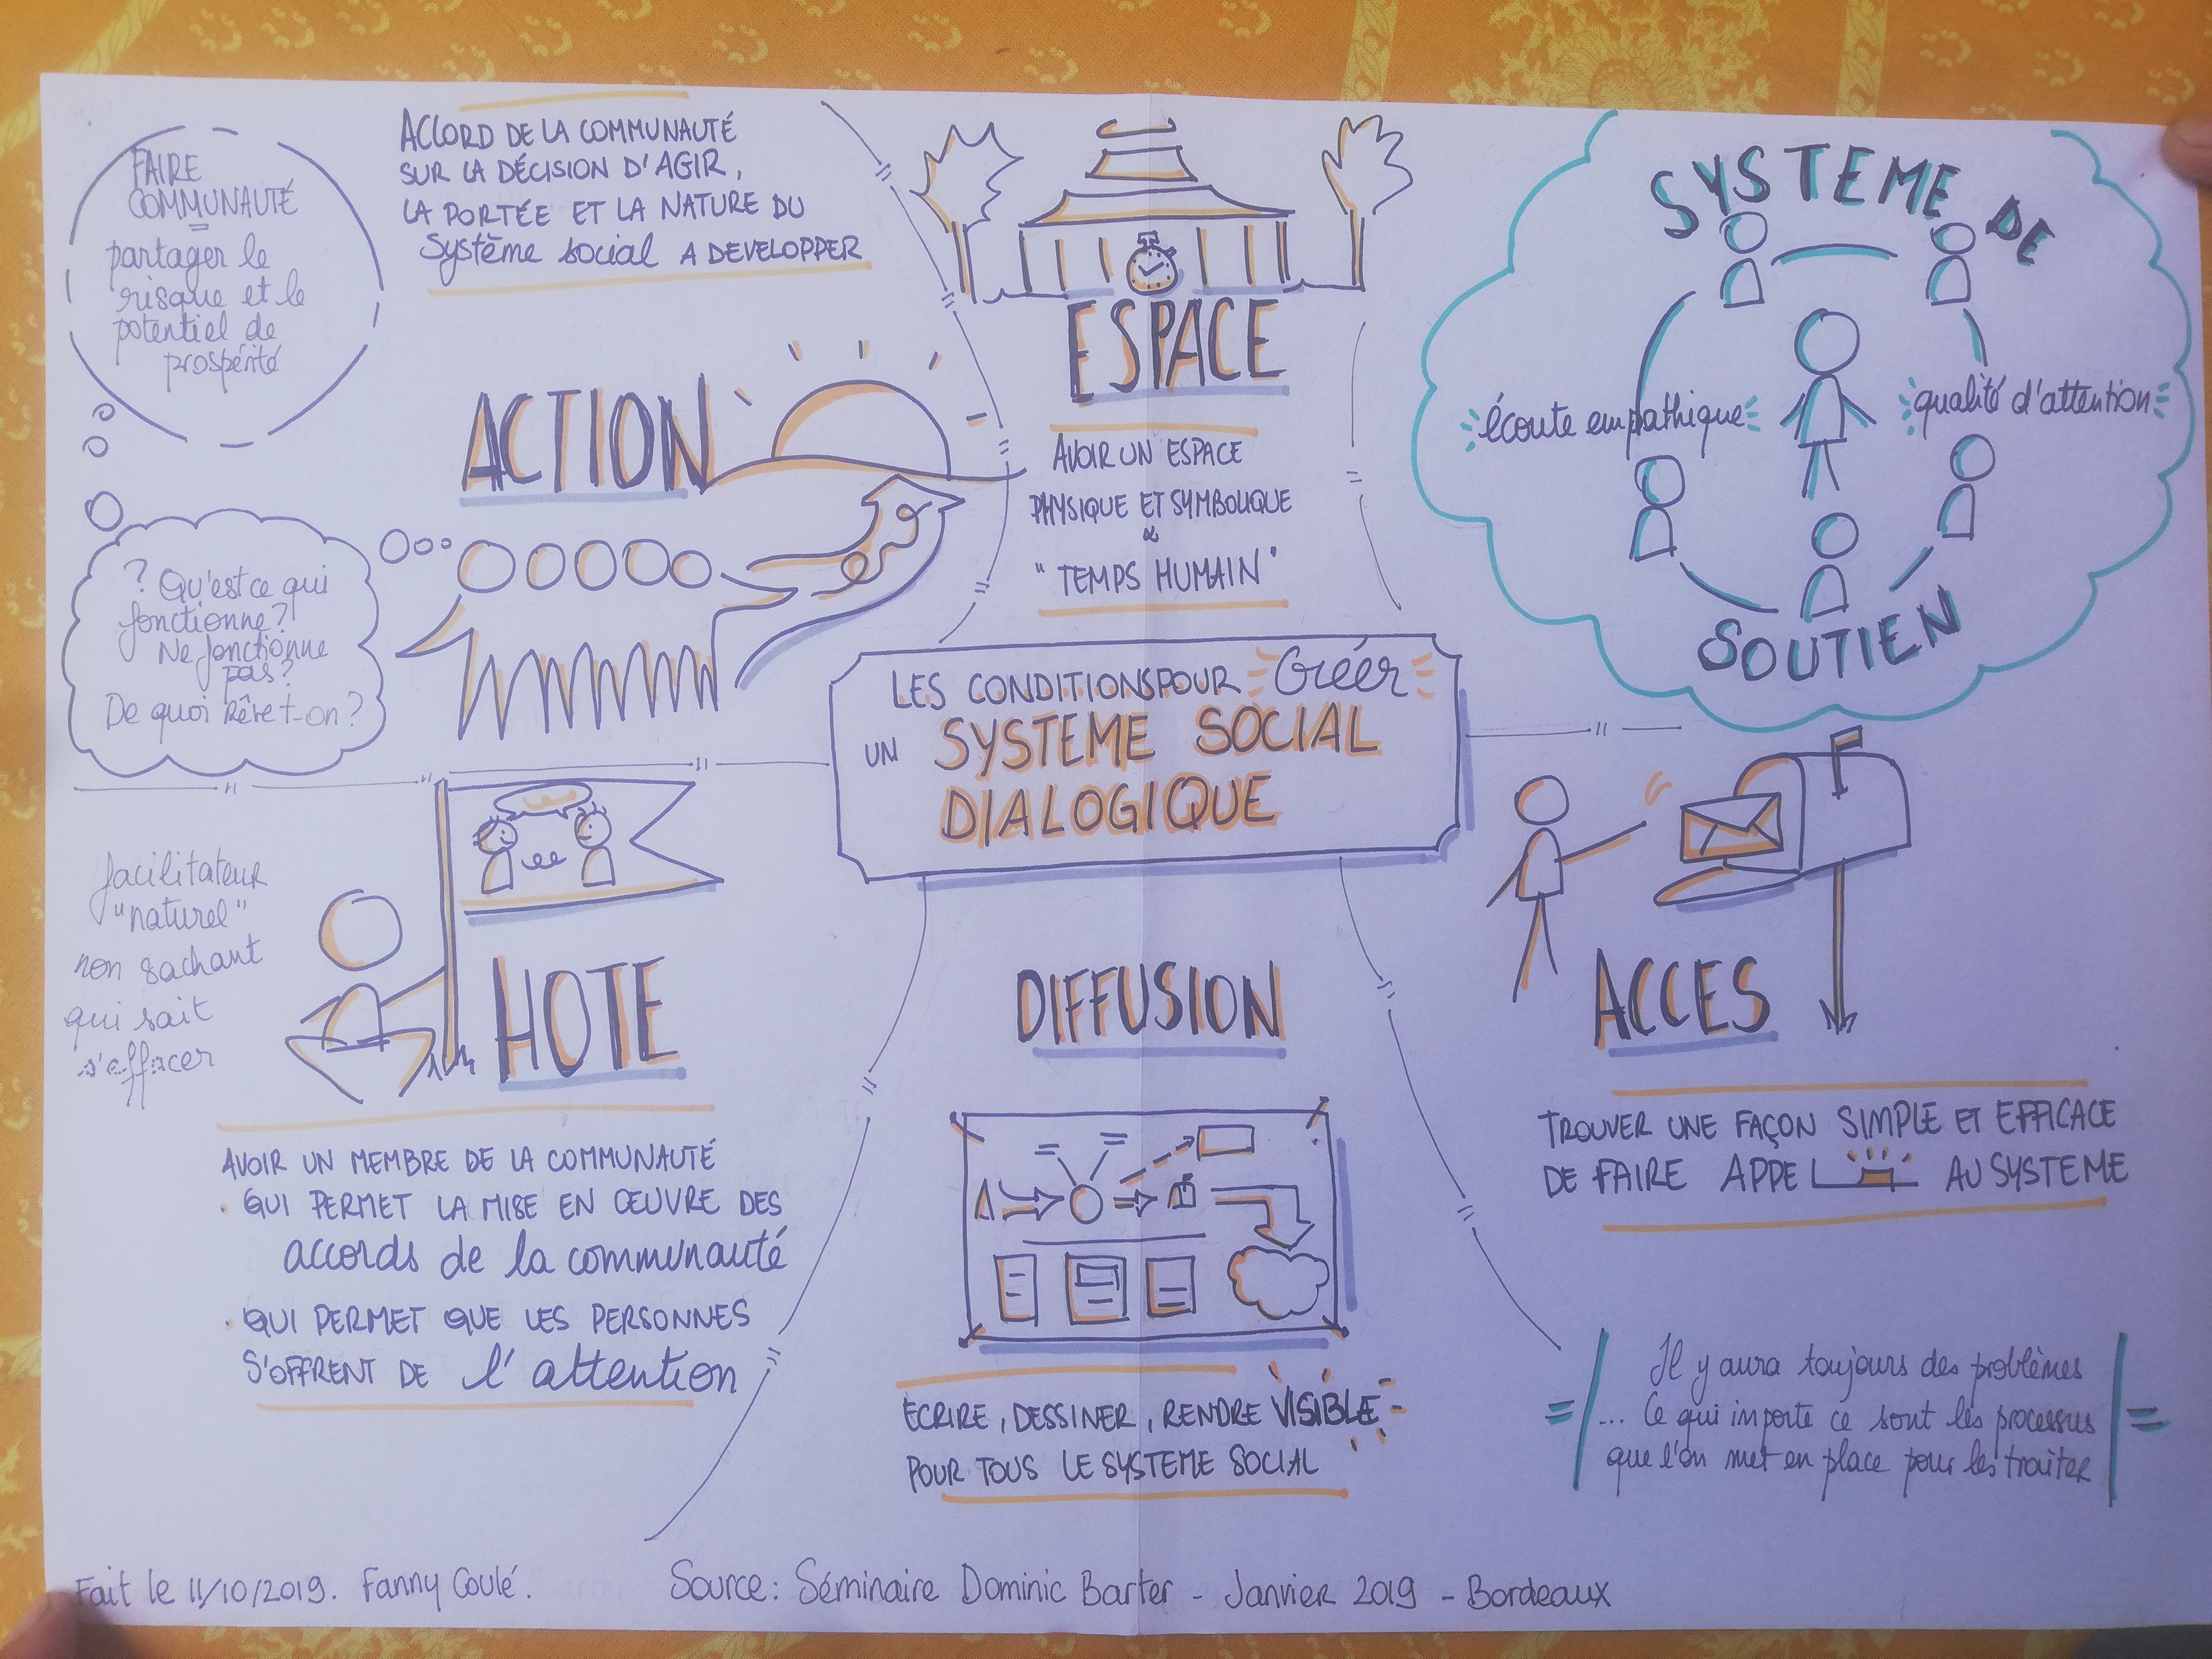 FAIRE
COMMUNAUTÉ
=
partager le
risque et le
potentiel de
prospérité
ACCORD DE LA COMMUNAUTÉ
SUR LA DÉCISION D'AGIR,
LA PORTÉE ET LA NATURE DU
Système social A DEVELOPPER
ACTION
? Qu'est ce qui
fonctionne?
Ne fonctionne
pas?
De quoi Rêve t-on?
ESPACE
AVOIR UN ESPACE
PHYSIQUE ET SYMBOLIQUE
&
"TEMPS HUMAIN"
SYSTEME DE
écoute empathique
qualité d'attention
SOUTIEN
LES CONDITIONS POUR Créér
UN SYSTEME SOCIAL
DIALOGIQUE
facilitateur
"naturel"
non sachant
qui sait
s'effacer
HOTE
AVOIR UN MEMBRE DE LA COMMUNAUTÉ
• QUI PERMET LA MISE EN ŒUVRE DES
accords de la communauté
• QUI PERMET QUE LES PERSONNES
S'OFFRENT DE l'attention
DIFFUSION
ECRIRE, DESSINER, RENDRE VISIBLE
POUR TOUS LE SYSTEME SOCIAL
ACCES
TROUVER UNE FAÇON SIMPLE ET EFFICACE
DE FAIRE APPEL AU SYSTEME
Il y aura toujours des problèmes
... Ce qui importe ce sont les processus
que l'on met en place pour les traiter
Fait le 11/10/2019. Fanny Coulé.
Source: Séminaire Dominic Barter - Janvier 2019 - Bordeaux